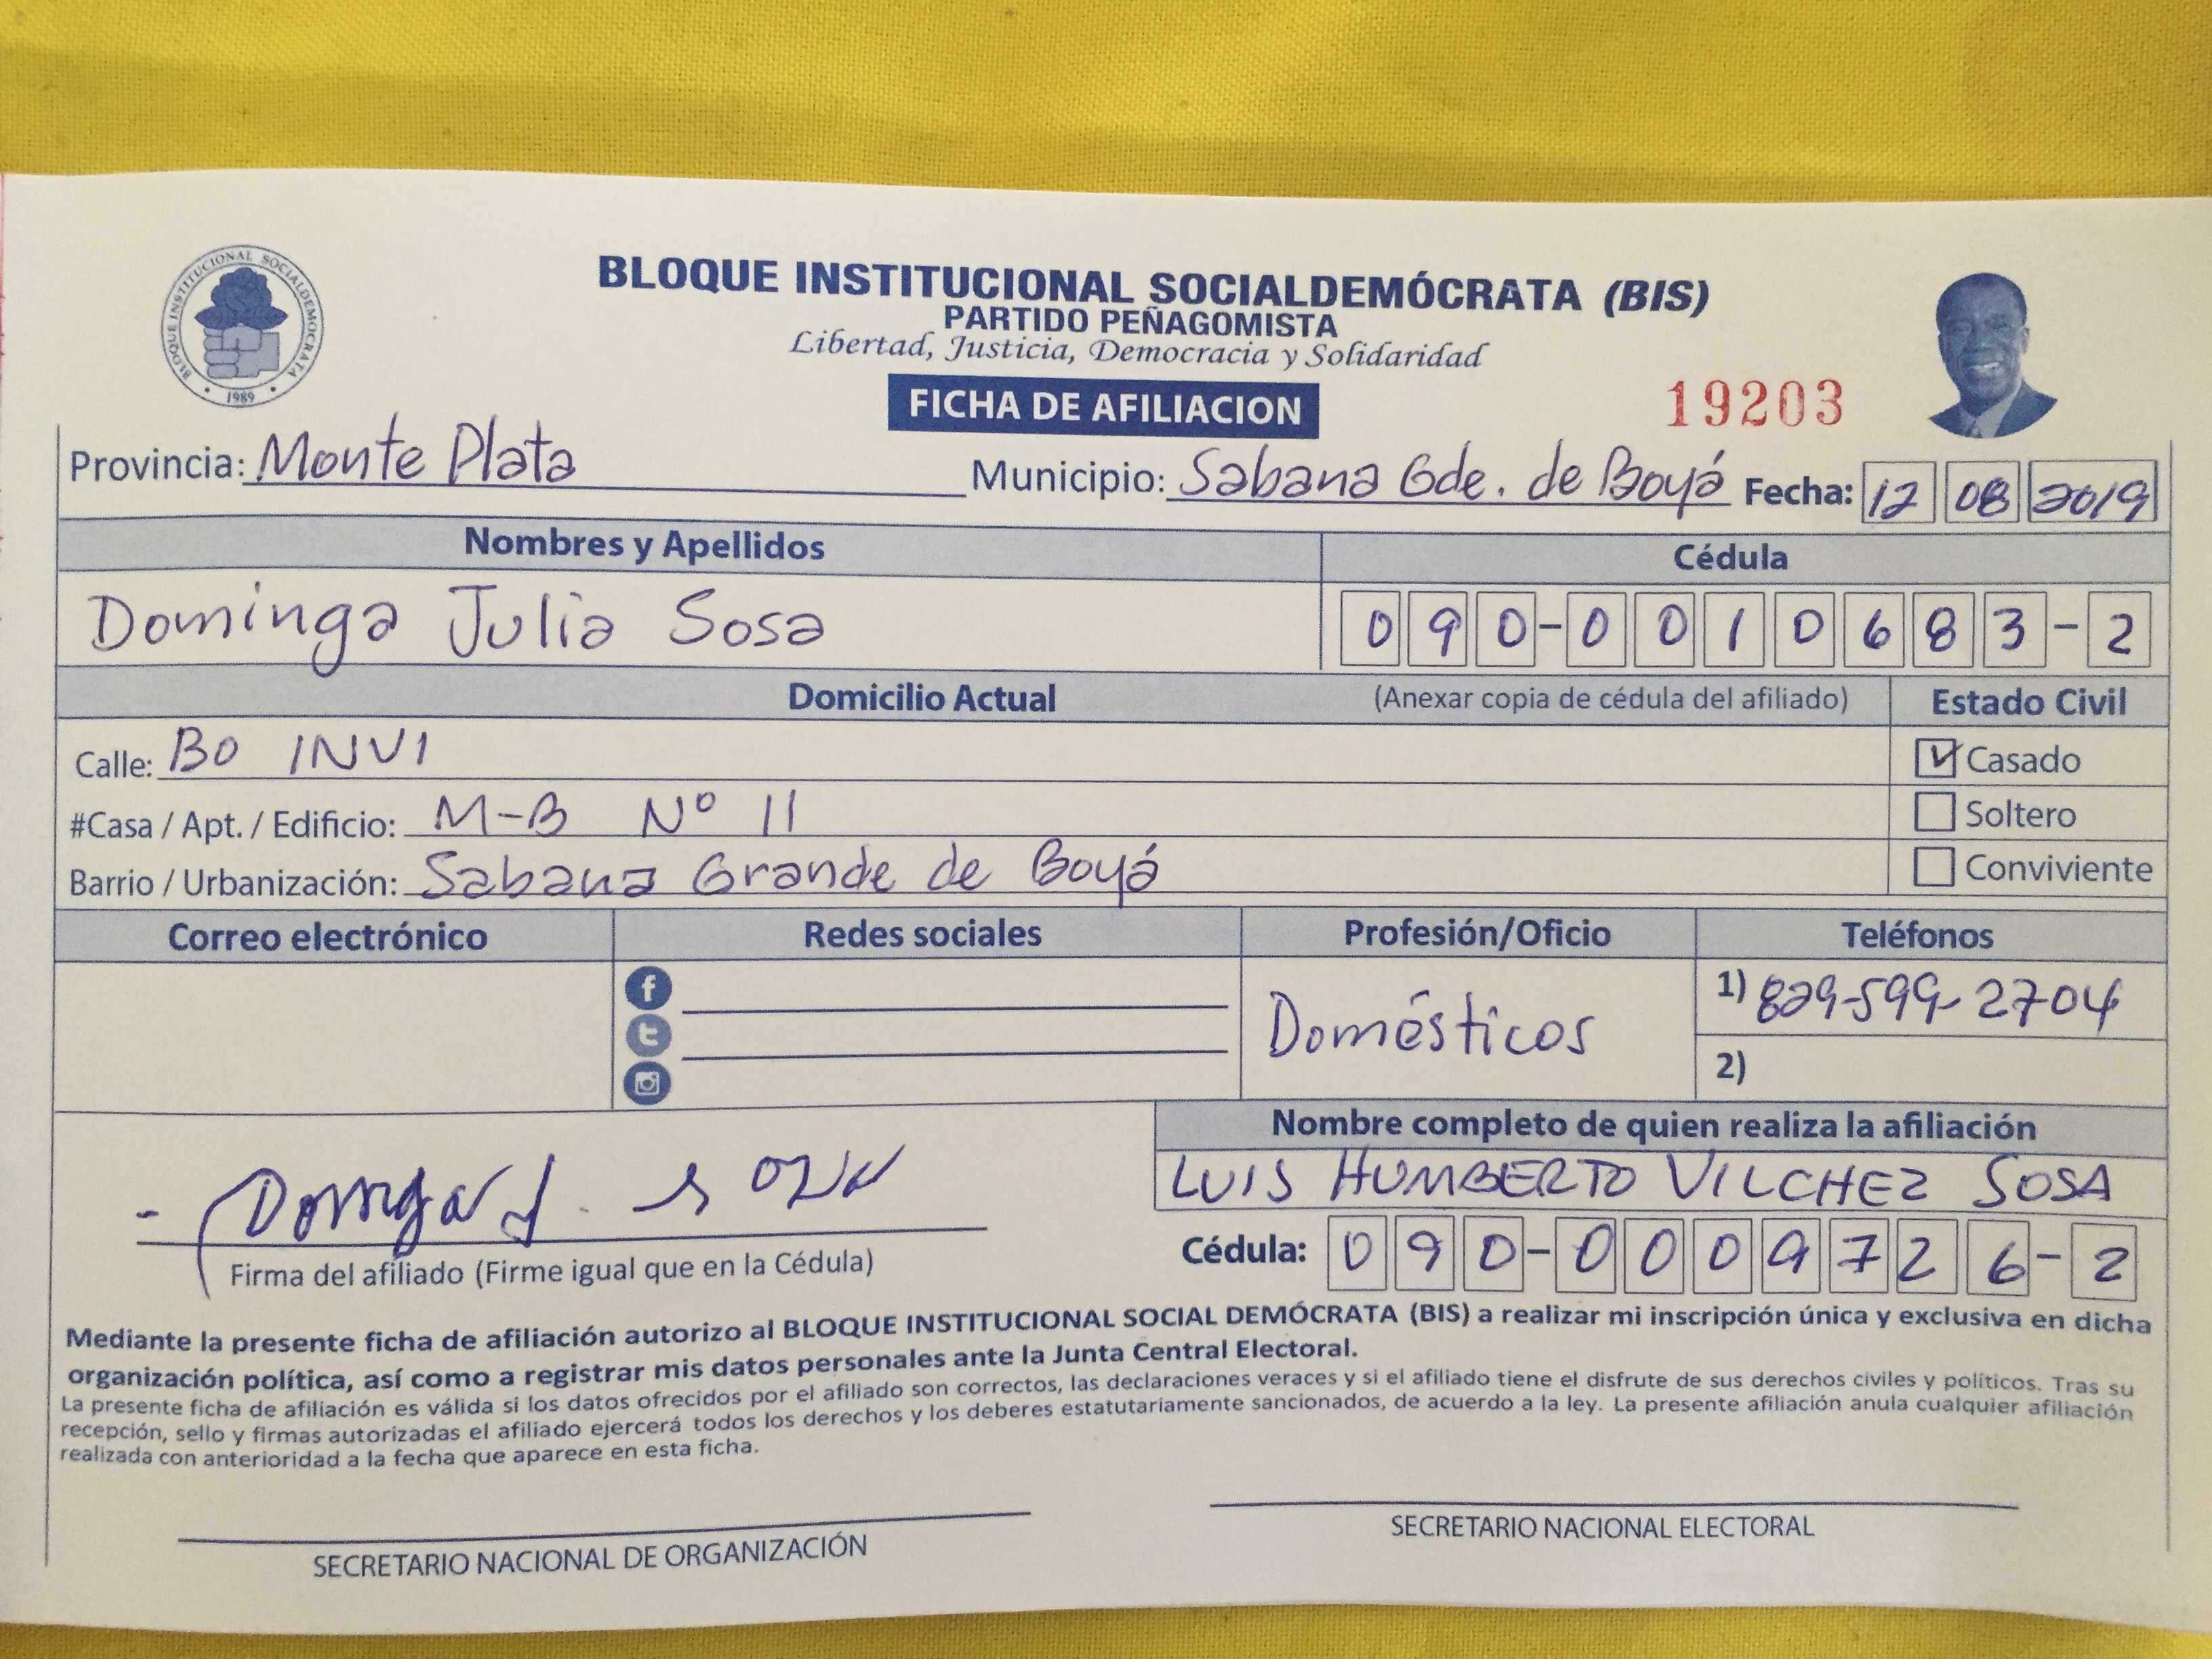 BLOQUE INSTITUCIONAL SOCIALDEMÓCRATA
1989
BLOQUE INSTITUCIONAL SOCIALDEMÓCRATA (BIS)
PARTIDO PEÑAGOMISTA
Libertad, Justicia, Democracia y Solidaridad
FICHA DE AFILIACION
19203
Provincia: Monte Plata Municipio: Sabana Gde. de Boyá Fecha: 12 08 2019
Nombres y Apellidos Cédula
Dominga Julia Sosa 090-0010683-2
Domicilio Actual (Anexar copia de cédula del afiliado) Estado Civil
Calle: BO INVI Casado
#Casa / Apt. / Edificio: M-B Nº 11 Soltero
Barrio / Urbanización: Sabana Grande de Boyá Conviviente
Correo electrónico Redes sociales Profesión/Oficio Teléfonos
Domésticos 1) 829-599-2704
2)
Nombre completo de quien realiza la afiliación
LUIS HUMBERTO VILCHEZ SOSA
Dominga J. Sosa
Firma del afiliado (Firme igual que en la Cédula) Cédula: 090-0009726-2
Mediante la presente ficha de afiliación autorizo al BLOQUE INSTITUCIONAL SOCIAL DEMÓCRATA (BIS) a realizar mi inscripción única y exclusiva en dicha
organización política, así como a registrar mis datos personales ante la Junta Central Electoral.
La presente ficha de afiliación es válida si los datos ofrecidos por el afiliado son correctos, las declaraciones veraces y si el afiliado tiene el disfrute de sus derechos civiles y políticos. Tras su
recepción, sello y firmas autorizadas el afiliado ejercerá todos los derechos y los deberes estatutariamente sancionados, de acuerdo a la ley. La presente afiliación anula cualquier afiliación
realizada con anterioridad a la fecha que aparece en esta ficha.
SECRETARIO NACIONAL DE ORGANIZACIÓN SECRETARIO NACIONAL ELECTORAL